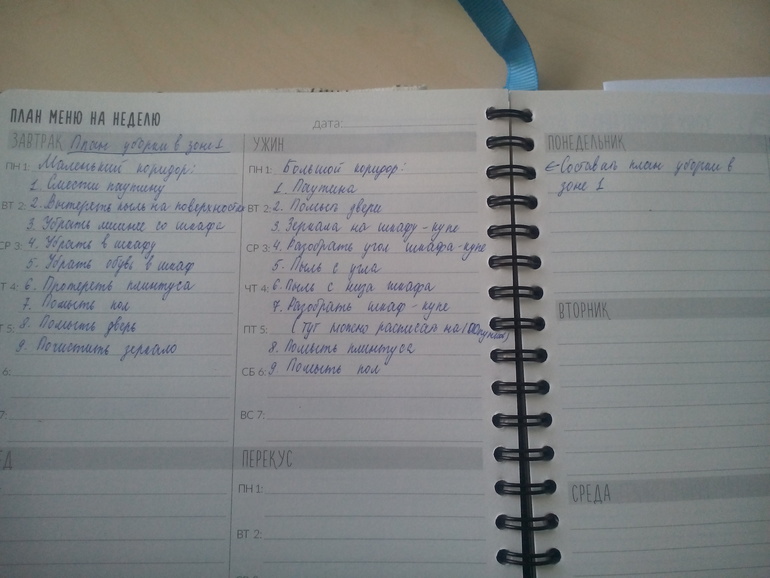 ПЛАН МЕНЮ НА НЕДЕЛЮ
дата:
ЗАВТРАК План уборки в зоне 1
ПН 1: Маленький коридор:
1. Смести паутину
ВТ 2: 2. Вытереть пыль на поверхностях
3. Убрать лишнее со шкафа
СР 3: 4. Убрать в шкафу
5. Убрать обувь в шкаф
Т 4: 6. Протереть плинтуса
7. Помыть пол
Т 5: 8. Помыть дверь
9. Почистить зеркало
6:
7:
ЕД
УЖИН
ПН 1: Большой коридор:
1. Паутина
ВТ 2: 2. Помыть двери
3. Зеркала на шкафу-купе
СР 3: 4. Разобрать угол шкафа-купе
5. Пыль с угла
ЧТ 4: 6. Пыль с низа шкафа
7. Разобрать шкаф-купе
ПТ 5: (тут можно расписать на 100 пунктов)
8. Помыть плинтуса
СБ 6: 9. Помыть пол
ВС 7:
ПЕРЕКУС
ПН 1:
ВТ 2:
ПОНЕДЕЛЬНИК
← Составить план уборки в
зоне 1
ВТОРНИК
СРЕДА